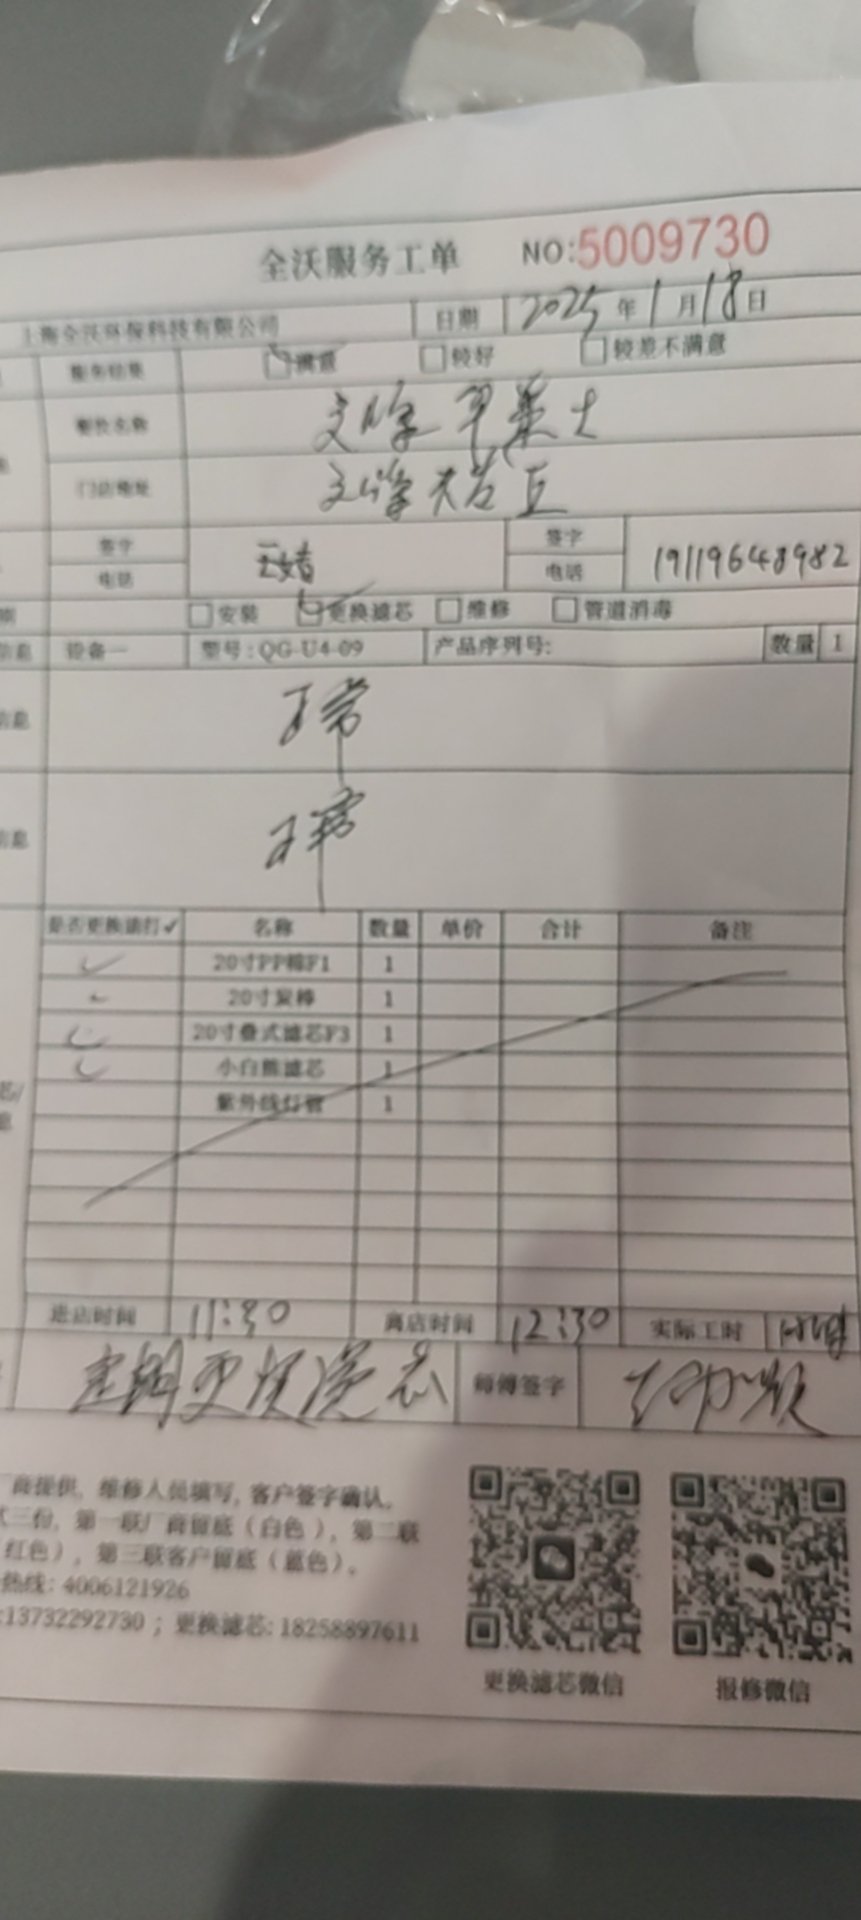 全沃服务工单 NO:5009730
上海全沃环保科技有限公司 日期 2025年1月18日
服务结果 满意 较好 较差不满意
餐饮名称
门店地址
签字 签字
电话 电话 19119648982
安装 更换滤芯 维修 管道消毒
信息 设备一 型号:QG-U4-09 产品序列号: 数量 1
信息 正常
信息 正常
是否更换请打✓ 名称 数量 单价 合计 备注
✓ 20寸PP棉F1 1
✓ 20寸炭棒 1
✓ 20寸叠式滤芯F3 1
✓ 小白熊滤芯 1
紫外线灯管 1
进店时间 11:30 离店时间 12:30 实际工时 1小时
定期更换滤芯 师傅签字
厂商提供，维修人员填写，客户签字确认，
式三份，第一联厂商留底（白色），第二联
红色），第三联客户留底（蓝色）。
热线：4006121926
:13732292730；更换滤芯:18258897611
更换滤芯微信 报修微信